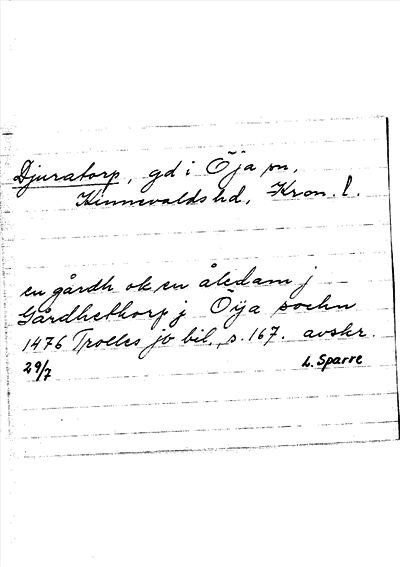 Djuratorp, gd i Öja sn,
Kinnevalds hd, Kron. l.
en gårdh ok en åledam j
Gårdhethorp j Öija sochn
1476 Trolles jb bil, s. 167. avskr.
29/7 L. Sparre